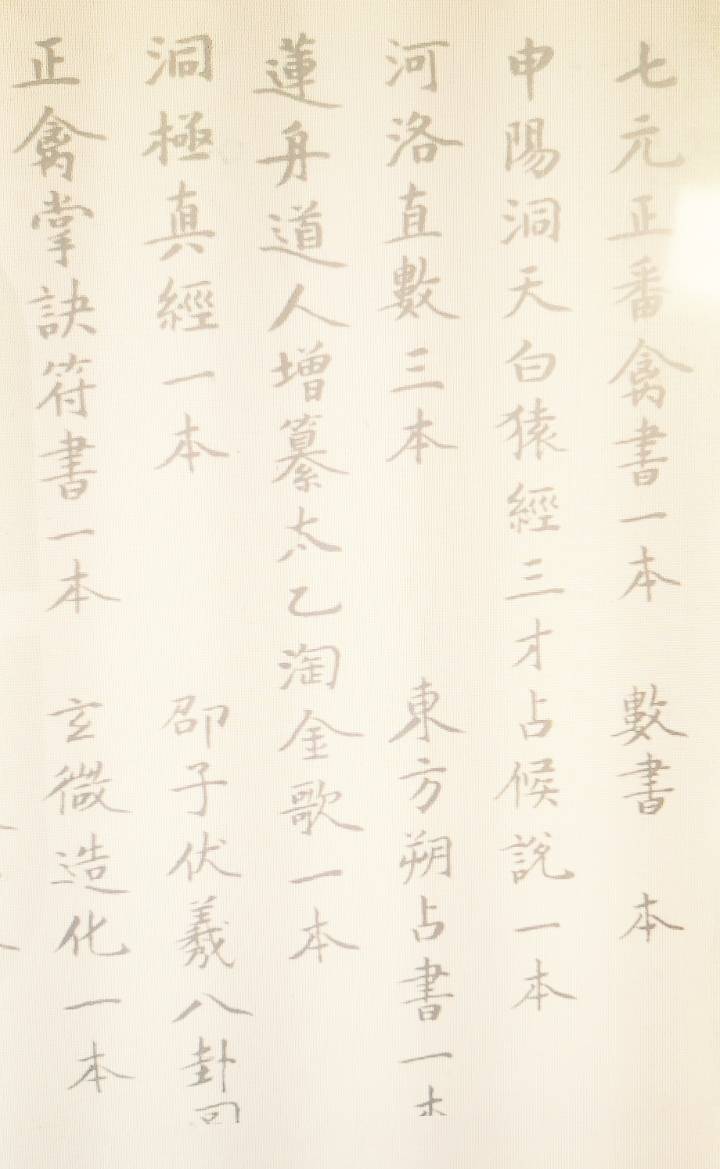 七元正番禽書一本　數書　本
申陽洞天白猿經三才占候説一本
河洛直數三本　東方朔占書一本
蓮舟道人增纂太乙淘金歌一本
洞極真經一本　邵子伏羲八卦
正禽掌訣符書一本　玄微造化一本